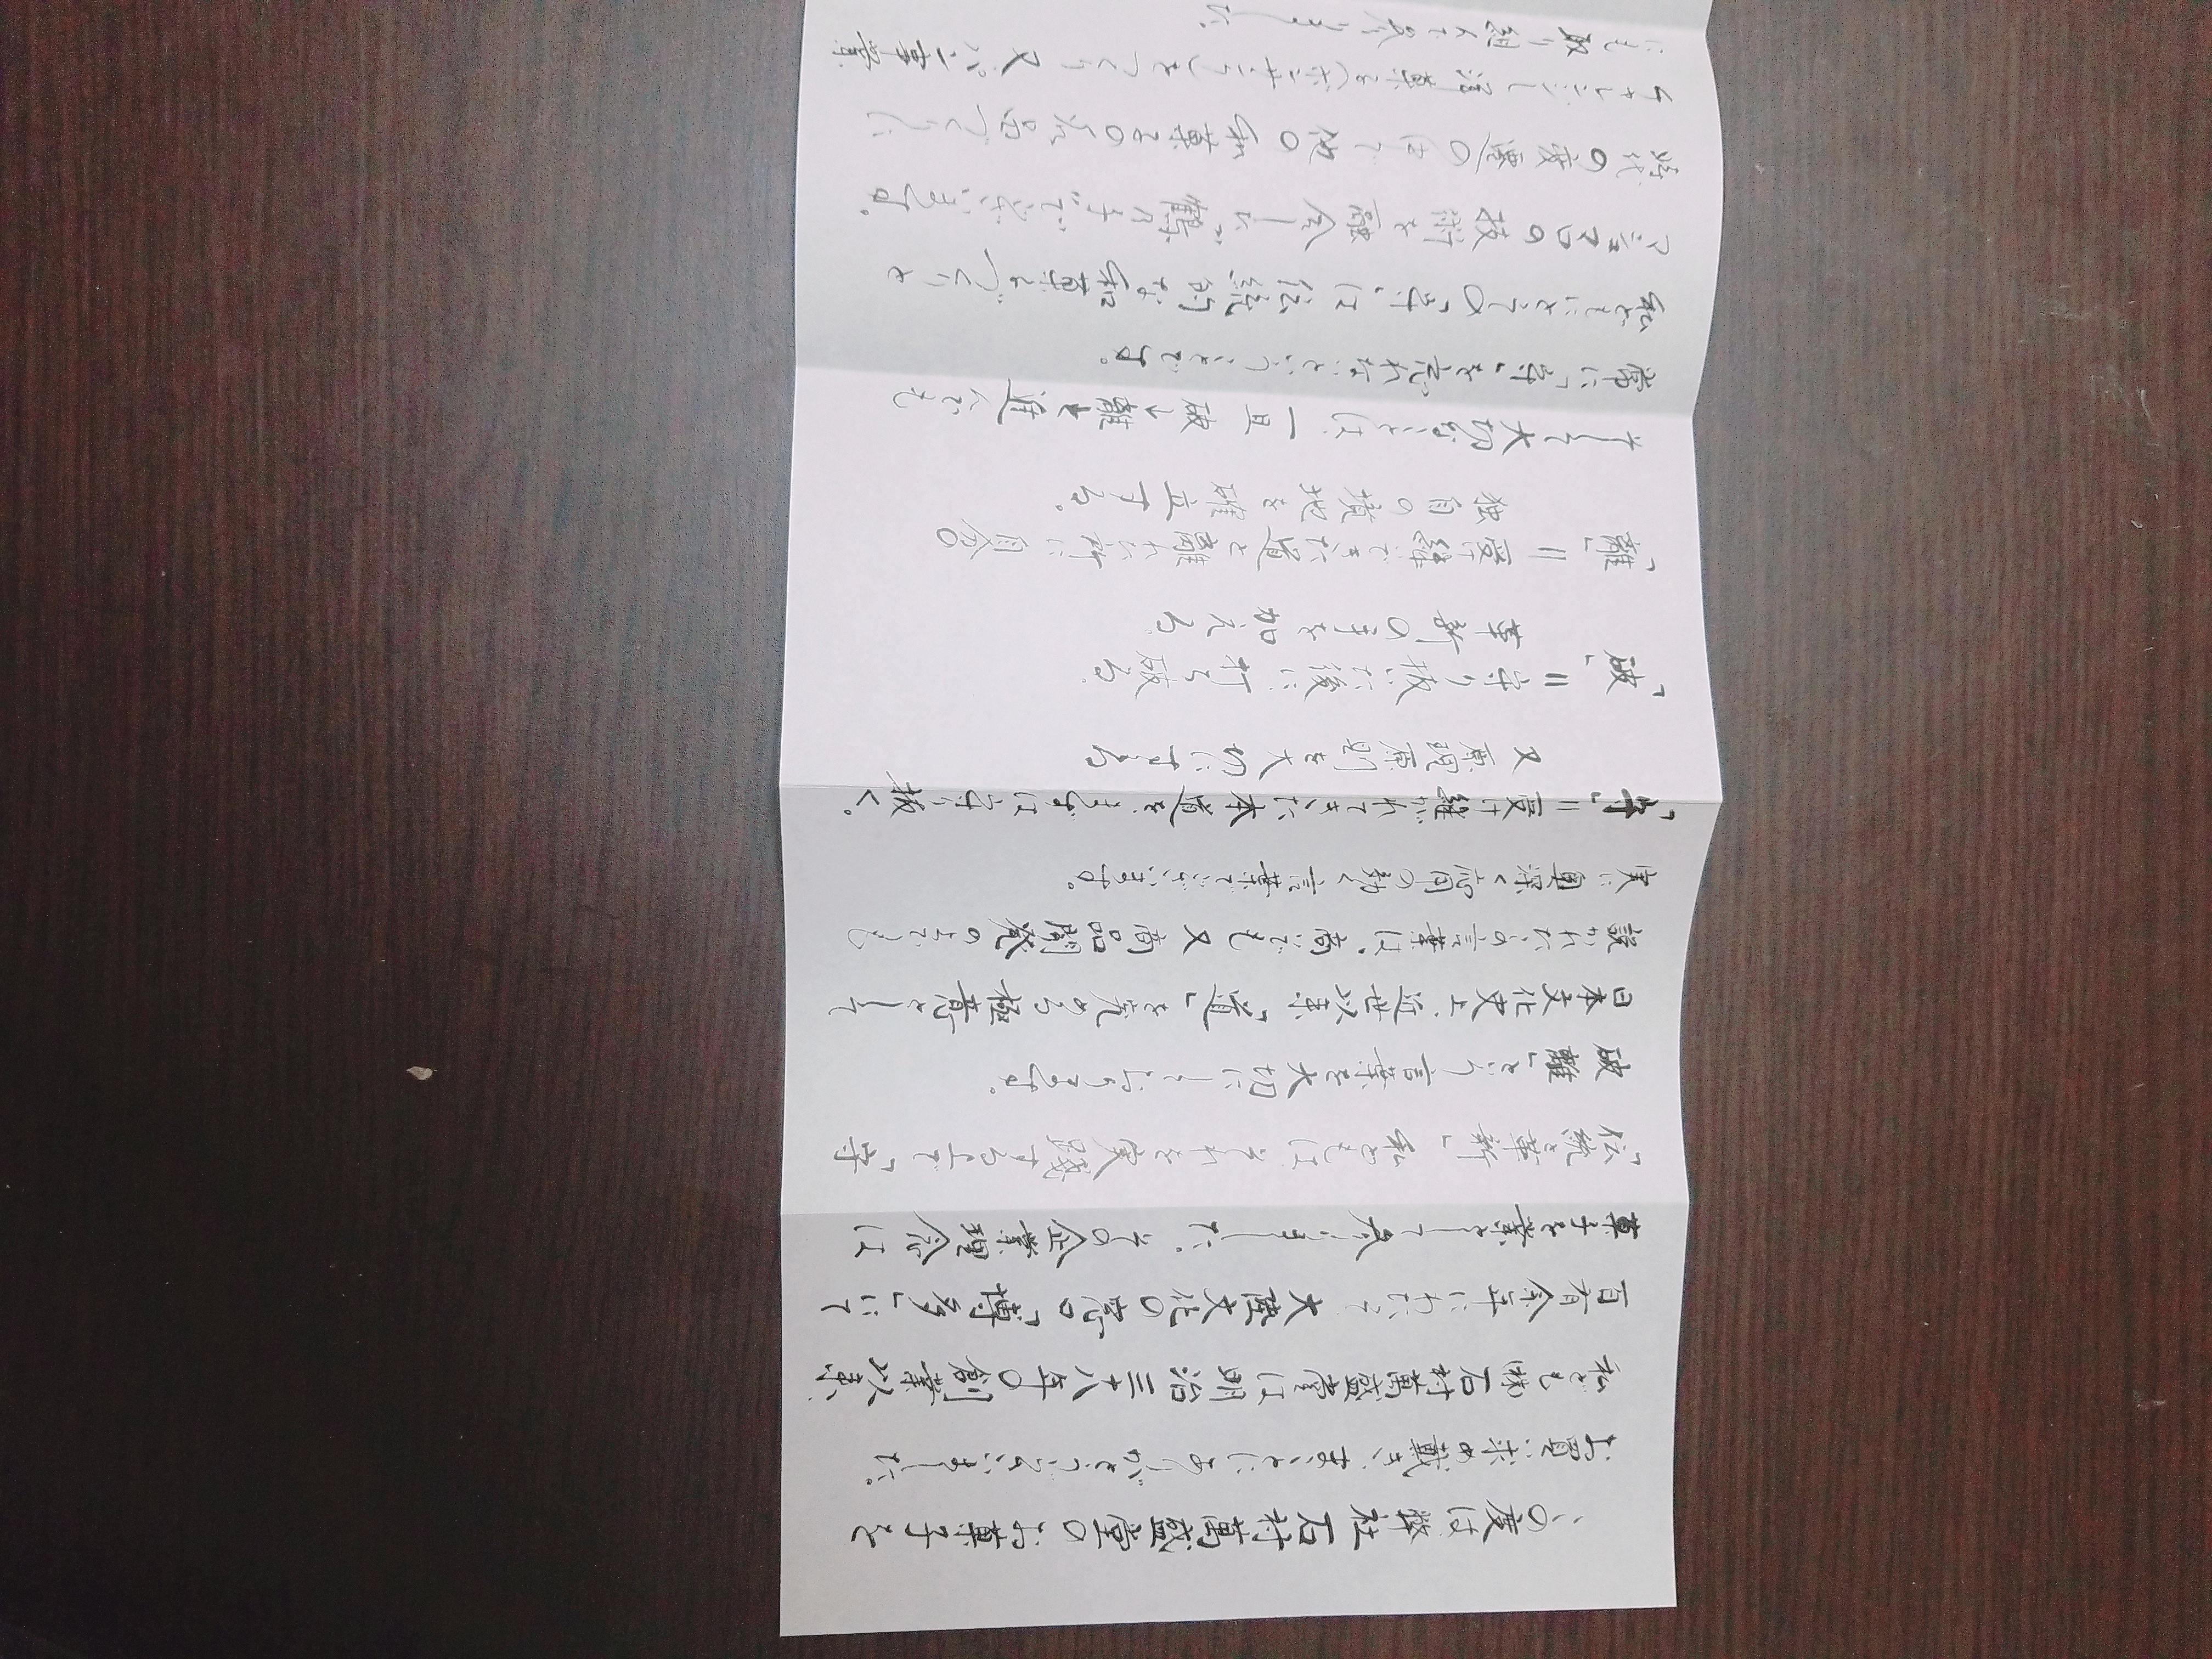 この度は弊社石村萬盛堂のお菓子を
お買い求め戴き、まことにありがとうございました。
私ども㈱石村萬盛堂は明治三十八年の創業以来、
百有余年にわたって大陸文化の窓口「博多」にて
菓子を業として参りました。その企業理念は
「伝統と革新」私どもはそれを実践する上で「守
破離」という言葉を大切にしております。
日本文化史上、近世以来「道」を究める極意として
説かれたこの言葉は、商いでも又商品開発の上でも
実に奥深く応用の効く言葉でございます。
「守」=受け継がれてきた本道を、まずは守り抜く。
又原理原則を大切にする
「破」=守り抜いた後に打ち破る。
革新の手を加える。
「離」=受け継いできた道と離れた所に自分の
独自の境地を確立する。
そして大切なことは、一旦破→離と進んでも
常に「守」を忘れないということです。
私どもにとっての「守」は伝統的な和菓子づくりや
マシュマロの技術を融合した「鶴乃子」でございます。
時代の変遷の中で他の和菓子の名品づくりに
チャレンジし洋菓子(ボンサンク)をつくり又パン事業
にも取り組んで参りました。